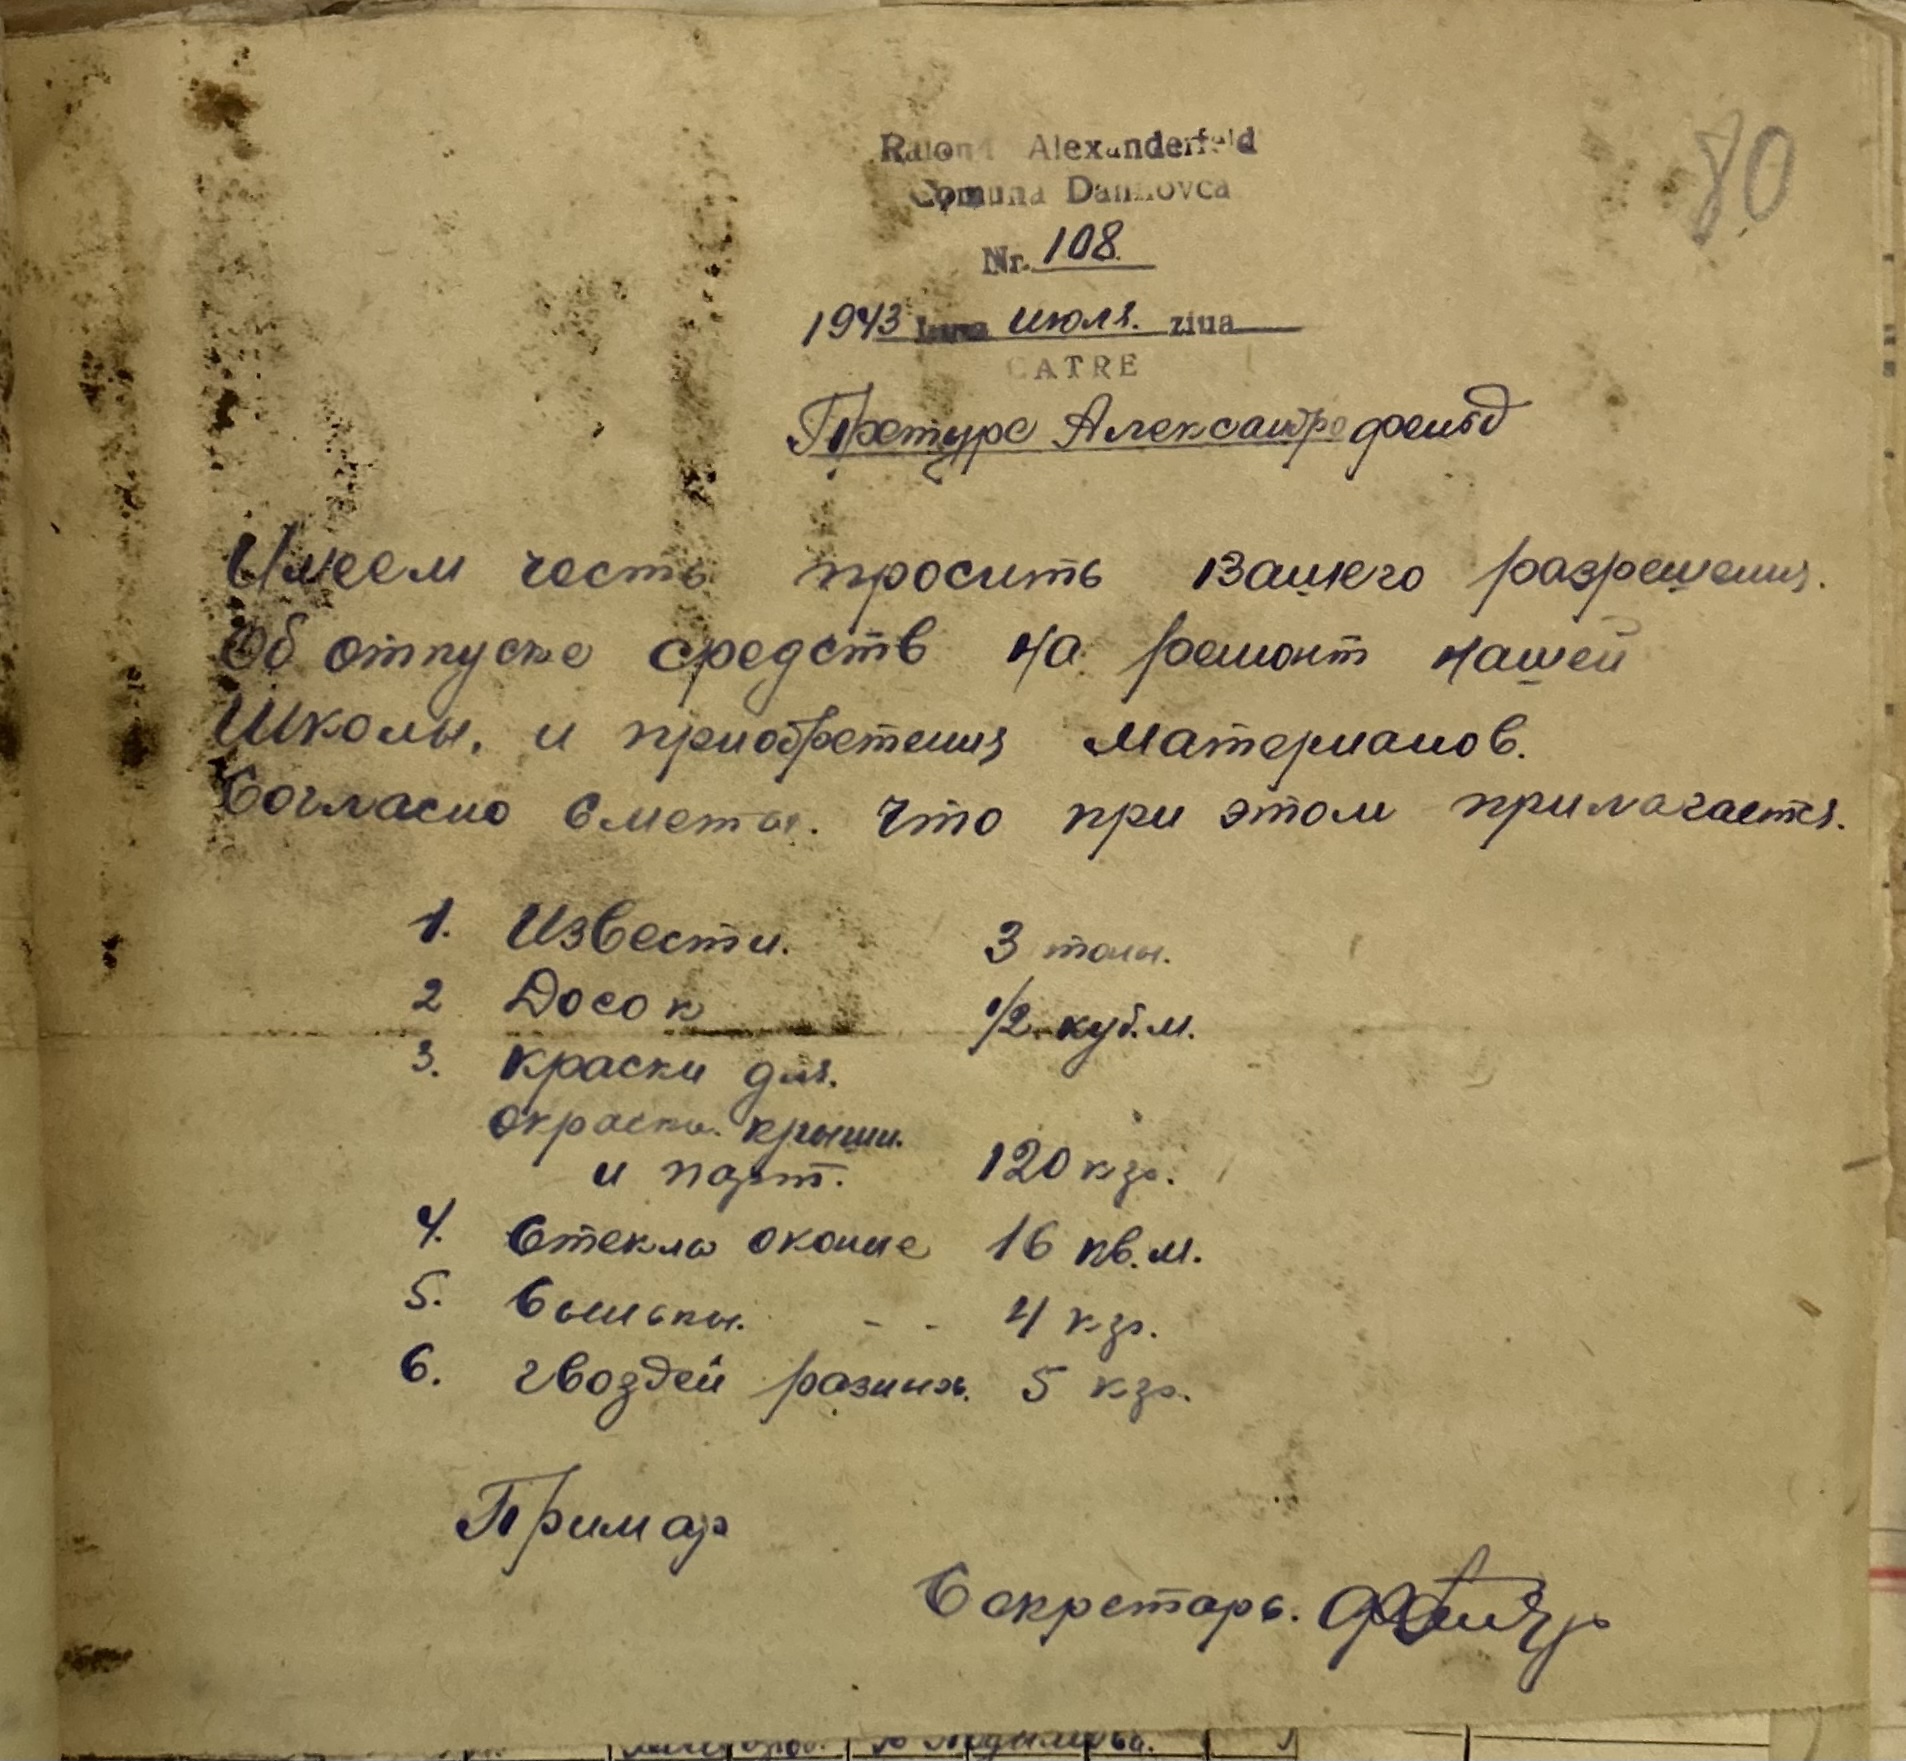 80
Raionul Alexanderfeld
Comuna Danilovca
Nr. 108
1943 Luna июля. ziua
CATRE
Претуре Александрофельд
Имеем честь просить Вашего разрешения.
Об отпуске средств на ремонт нашей
Школы. и приобретения материалов.
Согласно сметы. что при этом прилагается.
1. Извести. 3 тоны.
2 Досок 1/2 куб.м.
3. краски для.
окраски. крыши.
и парт. 120 кгр.
4. Стекла оконые 16 кв.м.
5. - - 4 кгр.
6. гвоздей разных. 5 кгр.
Примар
Секретарь.